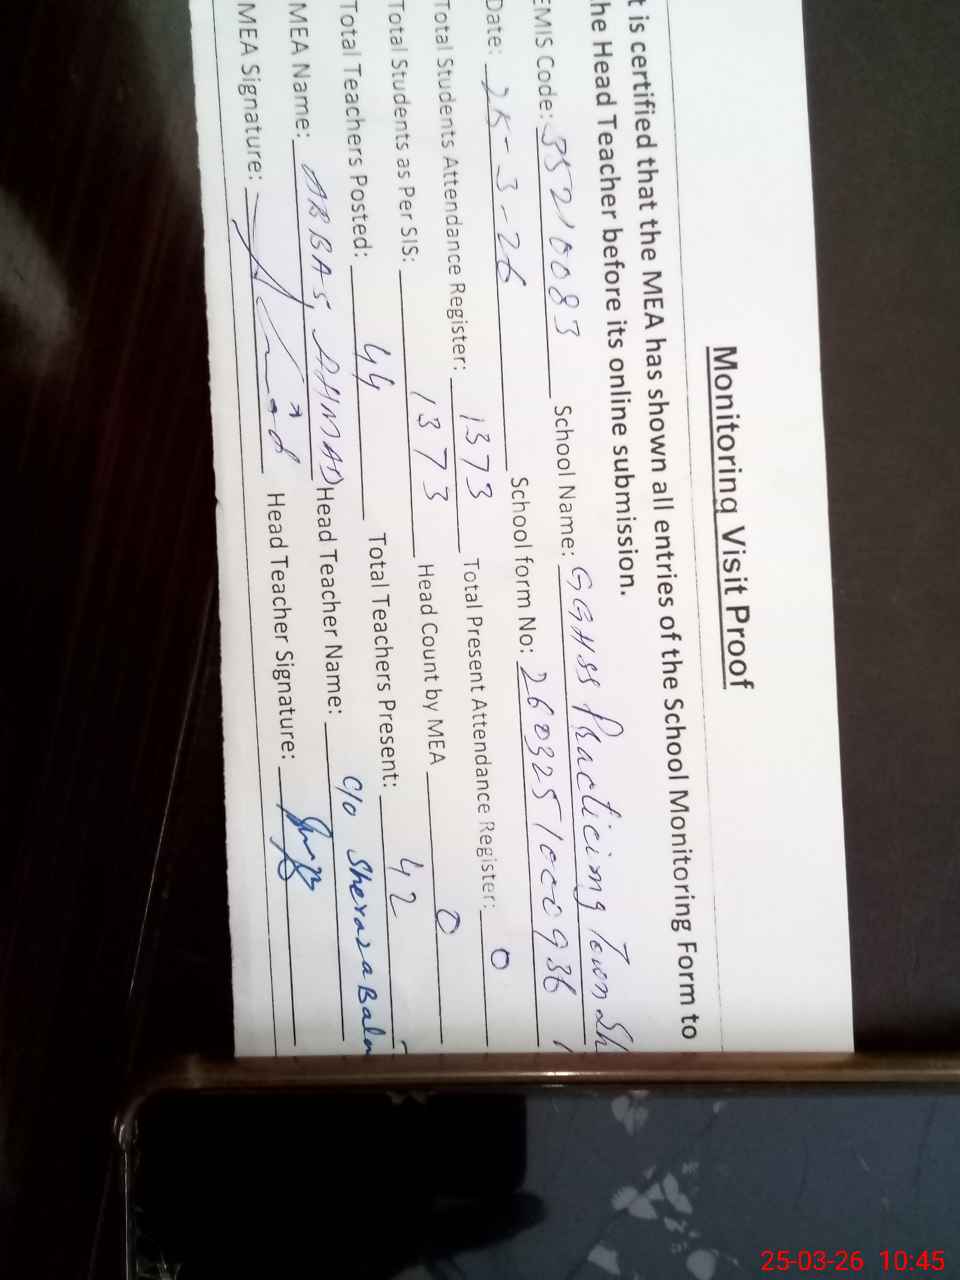 Monitoring Visit Proof
t is certified that the MEA has shown all entries of the School Monitoring Form to
he Head Teacher before its online submission.
EMIS Code: 35210083 School Name: GGHSS Practicing Town Sh
Date: 25-3-26 School form No: 260325
Total Students Attendance Register: 1373 Total Present Attendance Register: 0
Total Students as Per SIS: 1373 Head Count by MEA 0
Total Teachers Posted: 44 Total Teachers Present: 42
MEA Name: ABBAS, AHMAD Head Teacher Name: C/o Sheraza
MEA Signature: Head Teacher Signature:
25-03-26 10:45